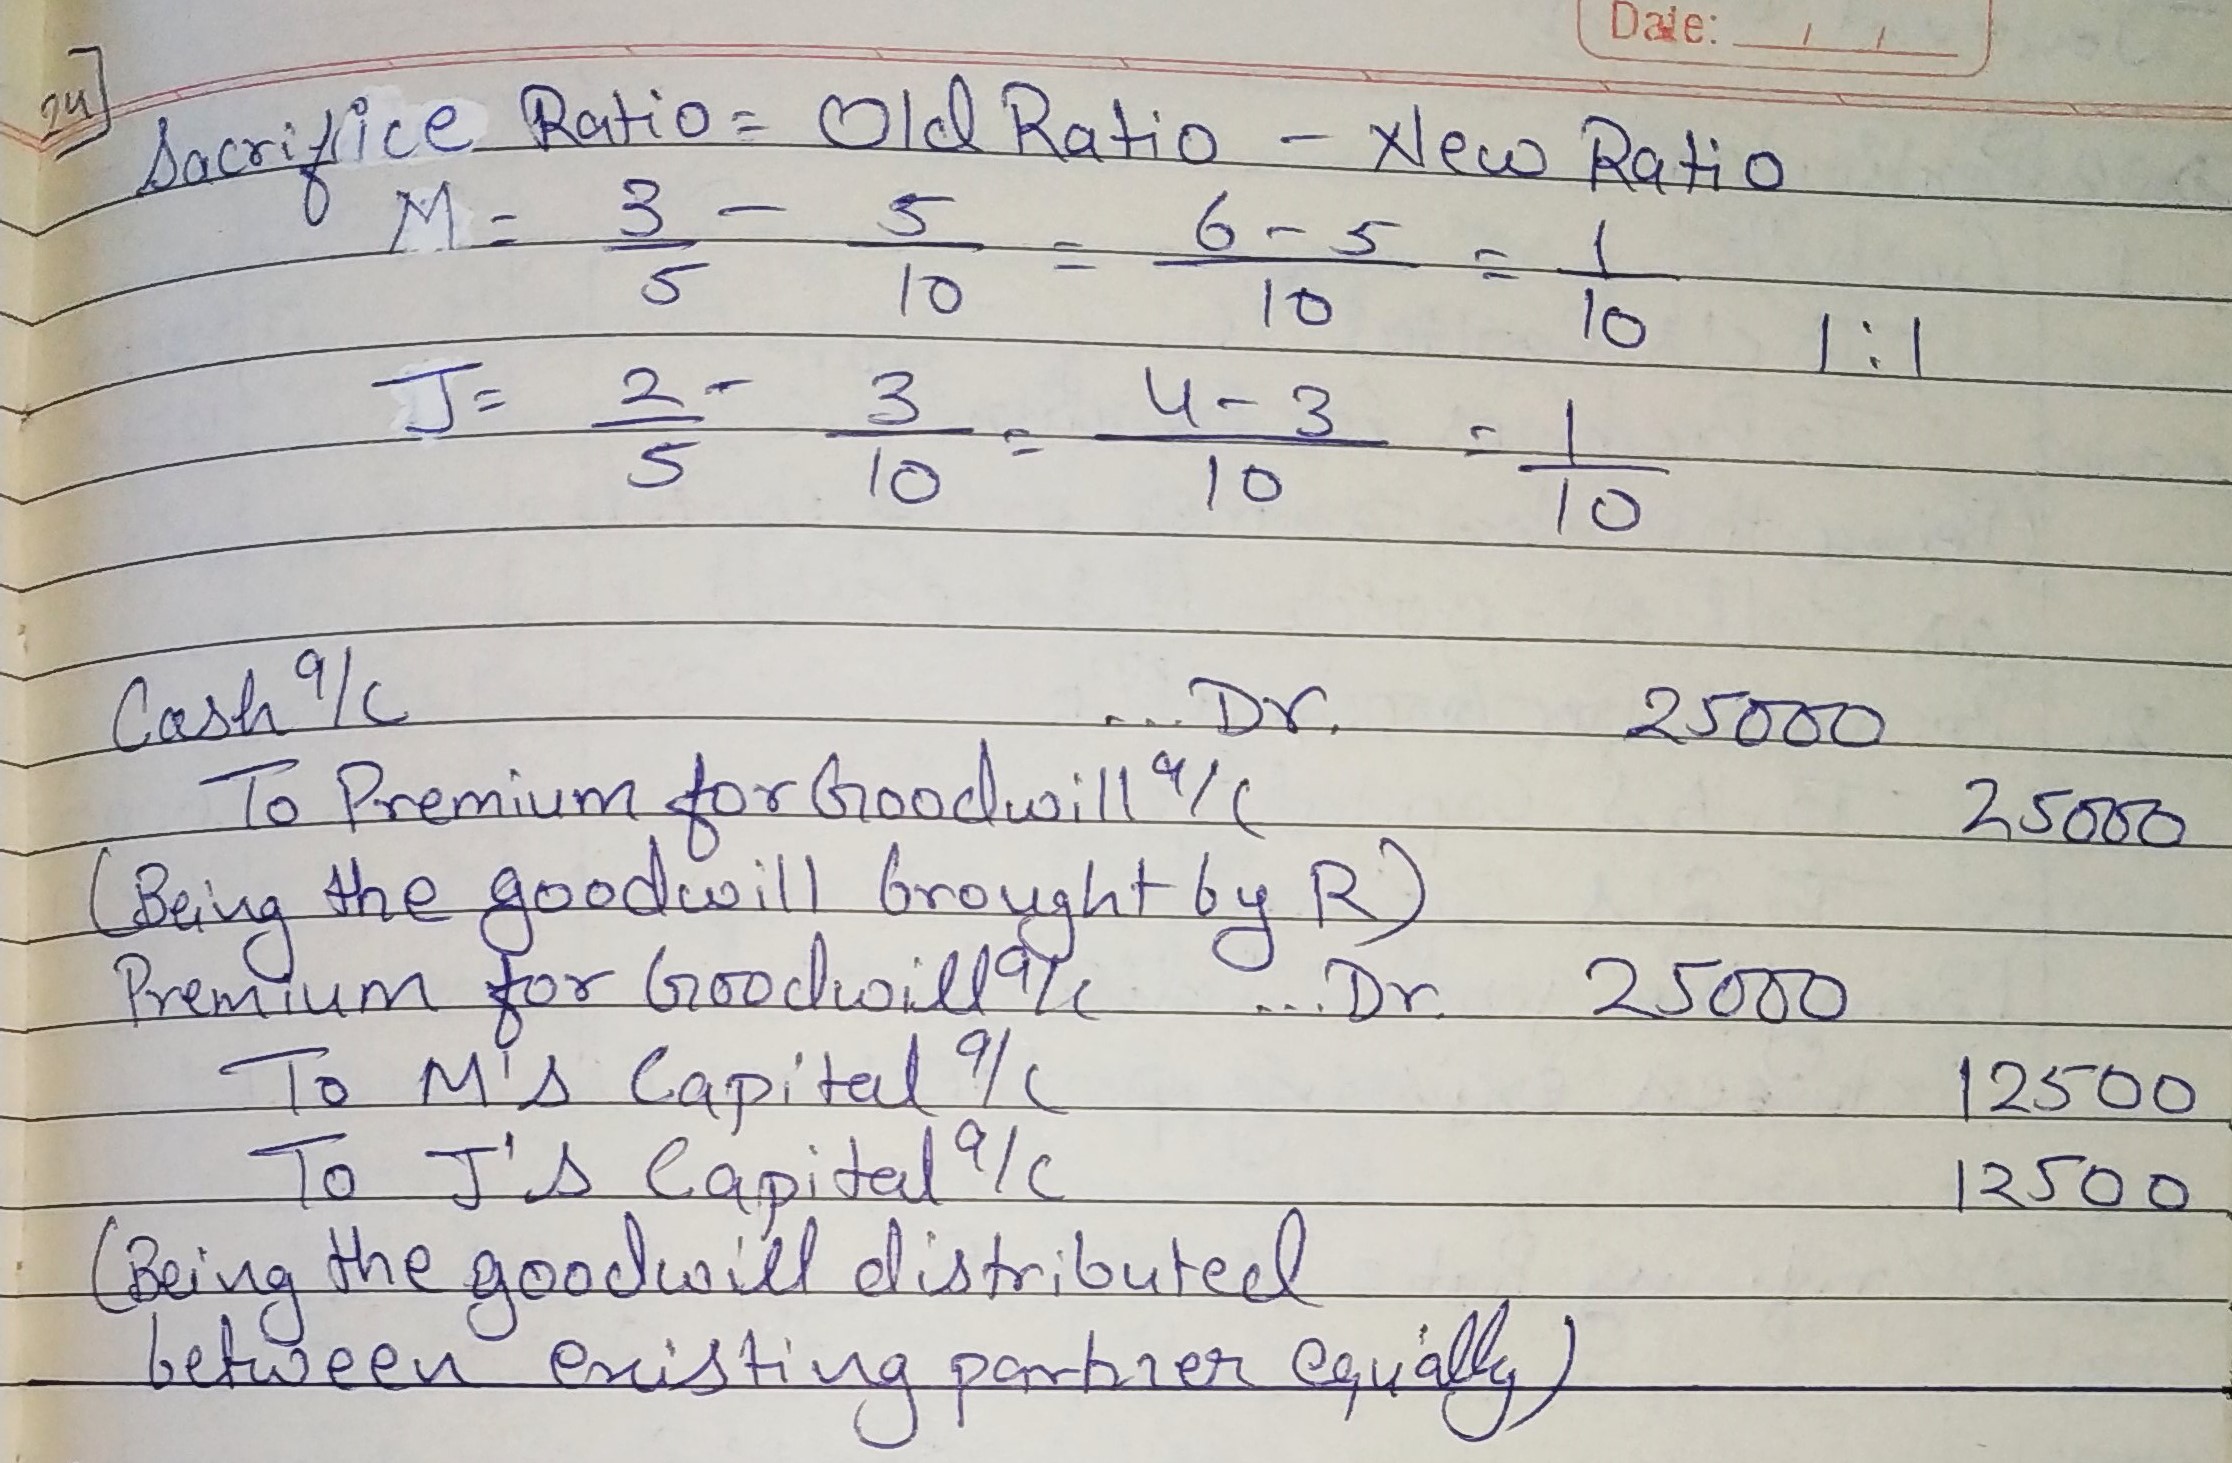 Date: / /
24]
Sacrifice Ratio = Old Ratio - New Ratio
M = 3/5 - 5/10 = 6-5/10 = 1/10
1:1
J = 2/5 - 3/10 = 4-3/10 = 1/10
Cash a/c ... Dr. 25000
To Premium for Goodwill a/c 25000
(Being the goodwill brought by R)
Premium for Goodwill a/c ... Dr. 25000
To M's Capital a/c 12500
To J's Capital a/c 12500
(Being the goodwill distributed
between existing partner equally)